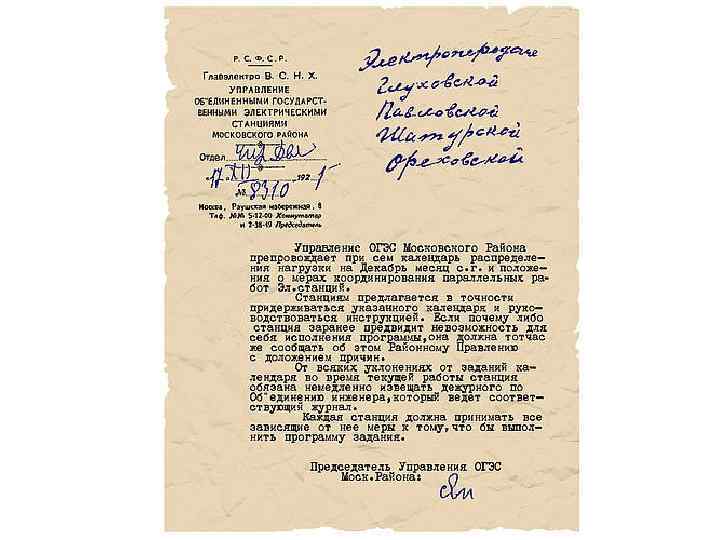 Р. С. Ф. С. Р.
Главэлектро В. С. Н. Х.
УПРАВЛЕНИЕ
ОБ'ЕДИНЕННЫМИ ГОСУДАРСТ-
ВЕННЫМИ ЭЛЕКТРИЧЕСКИМИ
СТАНЦИЯМИ
МОСКОВСКОГО РАЙОНА
Отдел
"17" XII 1921
№ 8310
Москва, Раушская набережная, 8
Тел. №№ 5-12-00 Коммутатор
и 2-38-49 Председатель
Электропередаче
Глуховской
Павловской
Шатурской
Ореховской
Управление ОГЭС Московского Района
препровождает при сем календарь распределе-
ния нагрузки на Декабрь месяц с.г. и положе-
ния о мерах координирования параллельных ра-
бот Эл.станций.
Станциям предлагается в точности
придерживаться указанного календаря и руко-
водствоваться инструкцией. Если почему либо
станция заранее предвидит невозможность для
себя исполнения программы,она должна тотчас
же сообщать об этом Районному Правлению
с доложением причин.
От всяких уклонениях от заданий ка-
лендаря во время текущей работы станция
обязана немедленно извещать дежурного по
Об'единению инженера,который ведет соответ-
ствующий журнал.
Каждая станция должна принимать все
зависящие от нее меры к тому,что бы выпол-
нить программу задания.
Председатель Управления ОГЭС
Моск.Района: